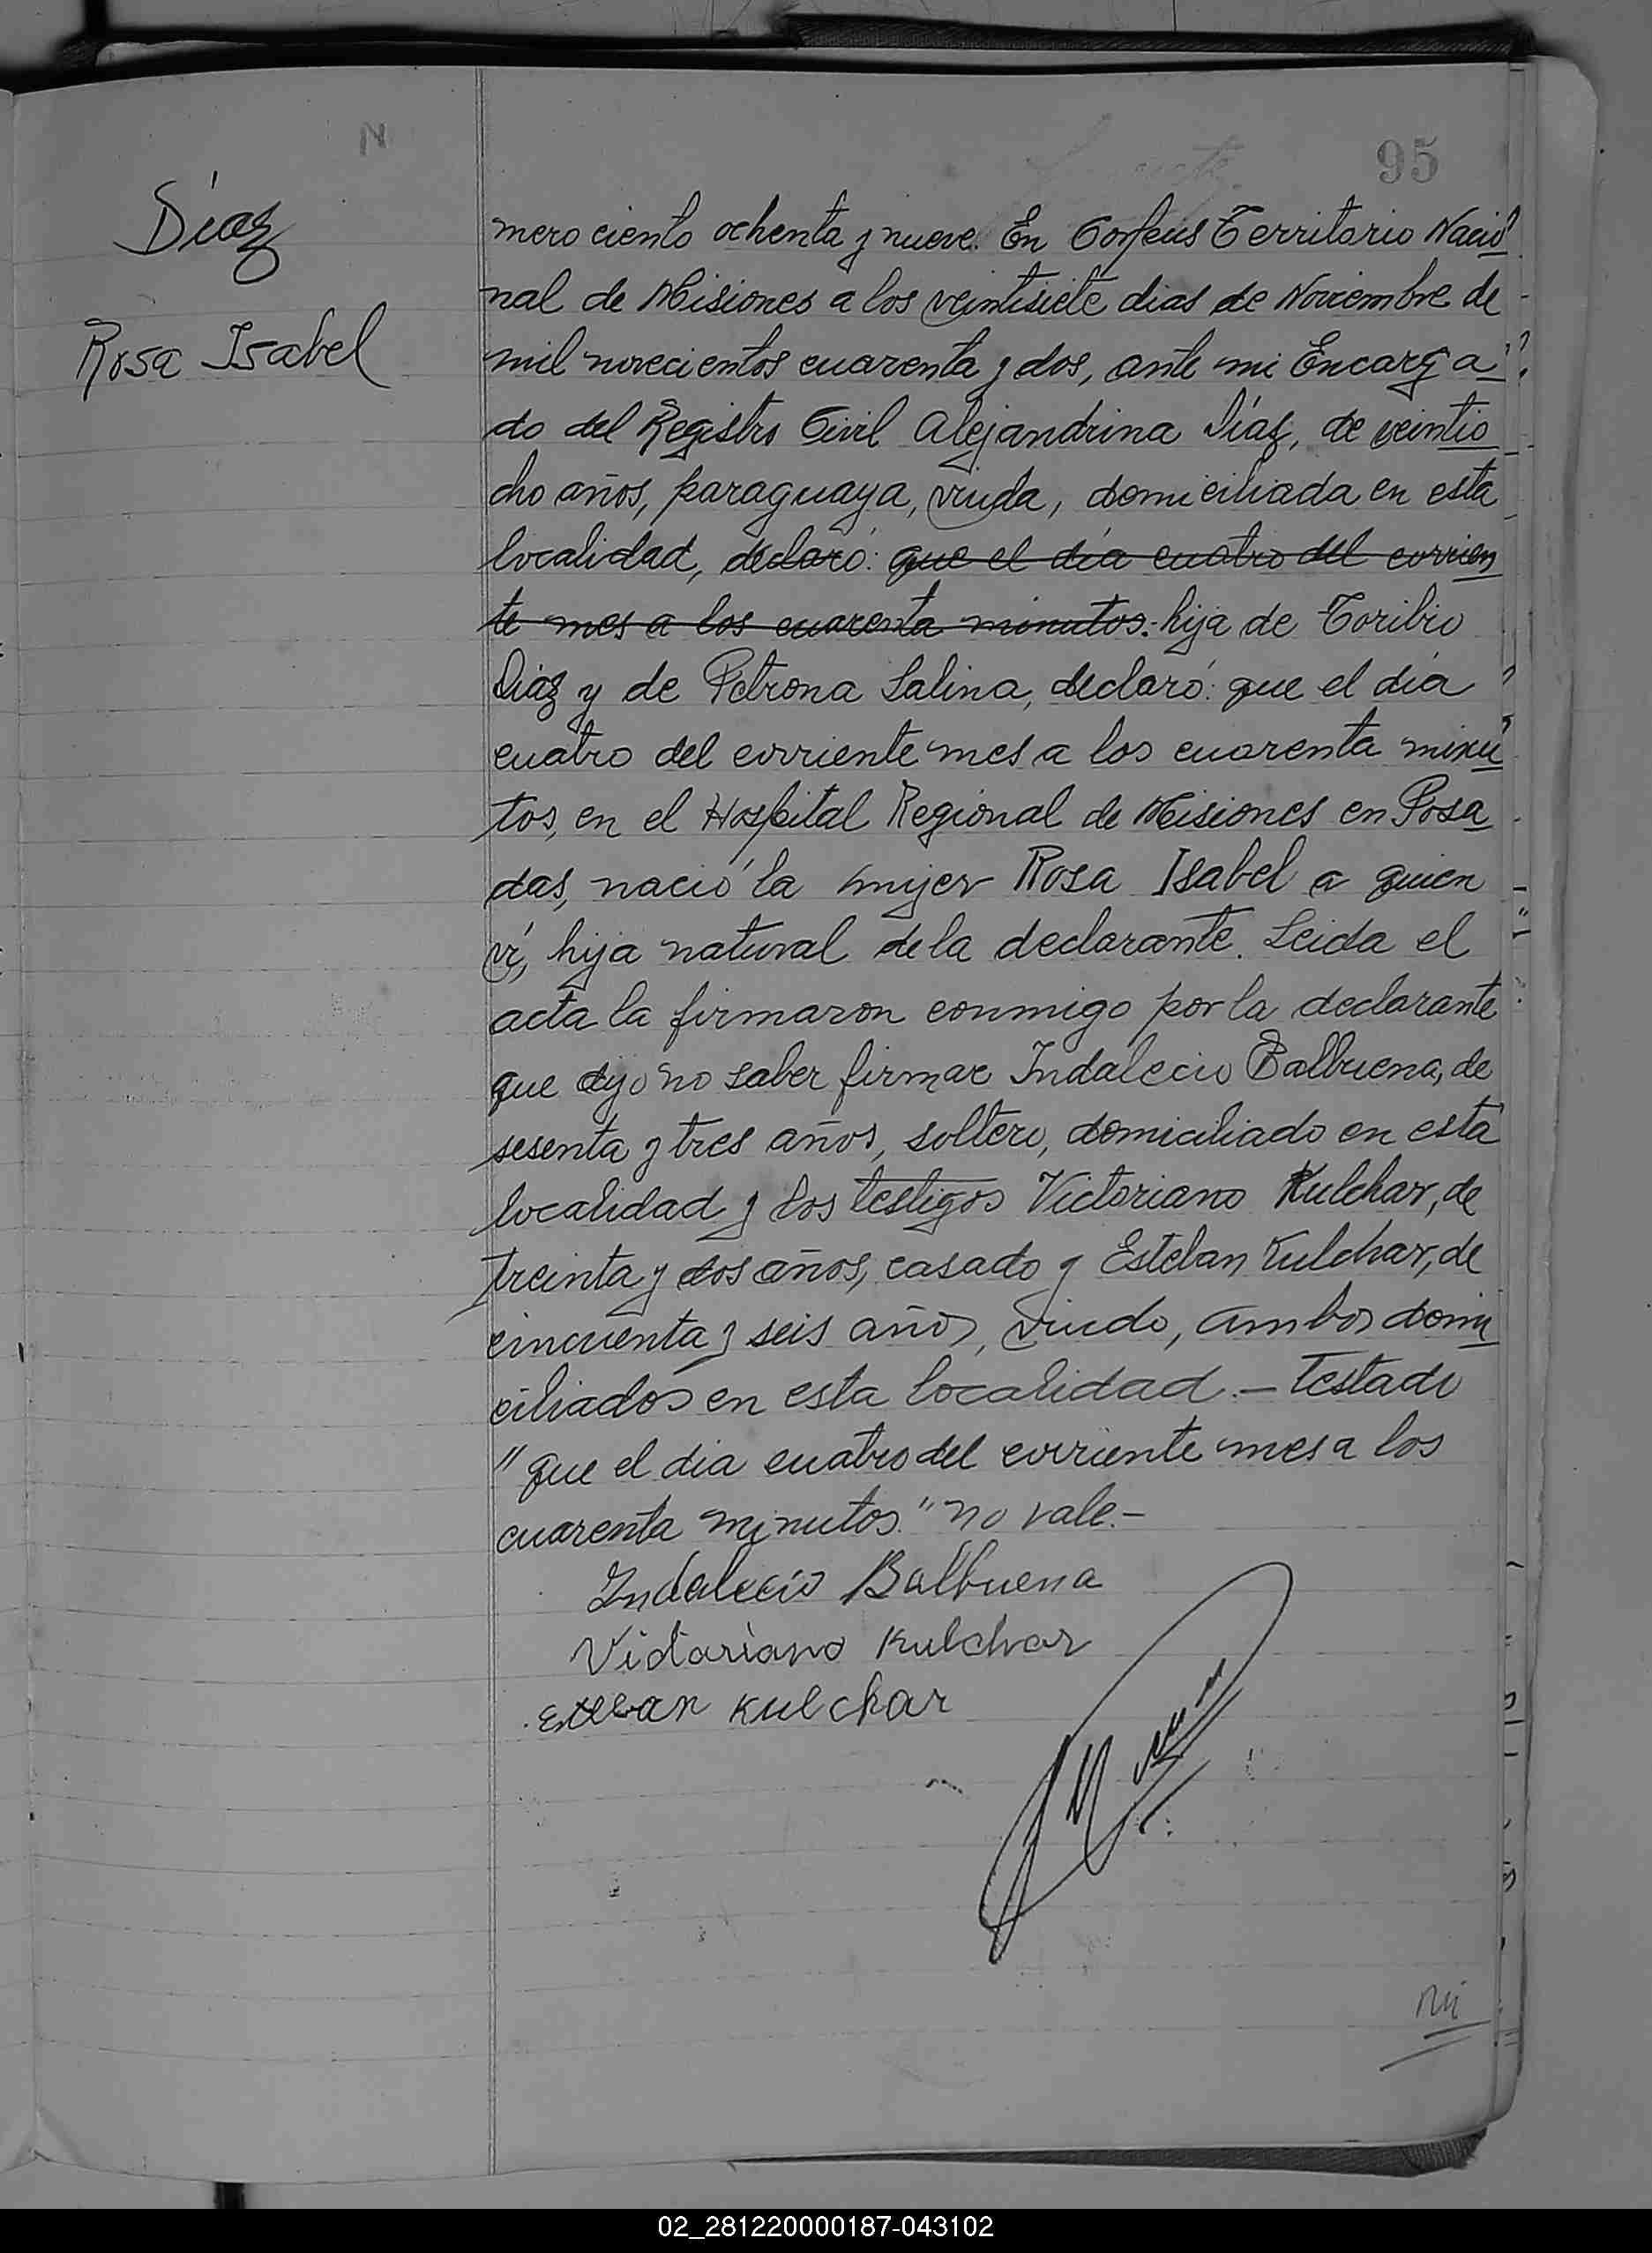 N
95
Díaz
Rosa Isabel
mero ciento ochenta y nueve. En Corpus Territorio Nacio
nal de Misiones a los veintisiete dias de Noviembre de
mil novecientos cuarenta y dos, ante mi Encarga
do del Registro Civil Alejandrina Díaz, de veintio
cho años, paraguaya, viuda, domiciliada en esta
localidad, declaró: que el día cuatro del corrien
te mes a los cuarenta minutos.- hija de Toribio
Díaz y de Petrona Salina, declaró: que el día
cuatro del corriente mes a los cuarenta minu
tos, en el Hospital Regional de Misiones en Posa
das, nació la mujer Rosa Isabel a quien
ví, hija natural de la declarante. Leida el
acta la firmaron conmigo por la declarante
que dijo no saber firmar Indalecio Balbuena, de
sesenta y tres años, soltero, domiciliado en esta
localidad y los testigos Victoriano Kulchar, de
treinta y dos años, casado y Esteban Kulchar, de
cincuenta y seis años, viudo, ambos domi
ciliados en esta localidad.- Testado
"que el dia cuatro del corriente mes a los
cuarenta minutos." no vale.-
Indalecio Balbuena
Victoriano Kulchar
Esteban Kulchar
02_281220000187-043102